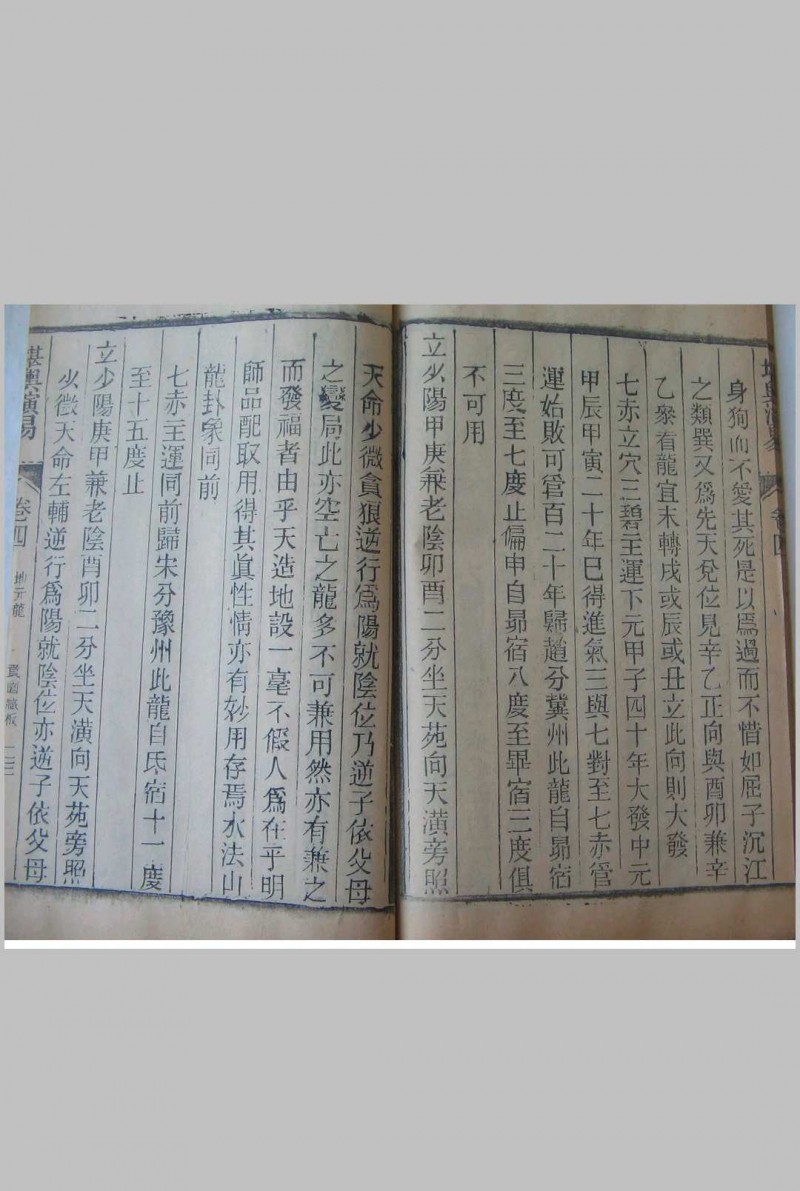 身狗而不愛其死是以爲過而不惜如屈子沉江
之類巽又爲先天兌位見辛乙正向與酉卯兼辛
乙衆看龍宜未轉戌或辰或丑立此向則大發
七赤立穴三碧主運下元甲子四十年大發中元
甲辰甲寅二十年巳得進氣三與七對至七赤管
運始敗可管百二十年歸趙分冀州此龍自昴宿
三度至七度止偏申自昴宿八度至畢宿三度俱
不可用
立少陽甲庚兼老陰卯酉二分坐天苑向天潢旁照
天命少微貪狼逆行爲陽就陰位乃逆子依父母
之變局此亦空亡之龍多不可兼用然亦有兼之
而發福者由乎天造地設一毫不假人爲在乎明
師品配取用得其眞性情亦有妙用存焉水法山
龍卦象同前
七赤主運同前歸宋分豫州此龍自氐宿十一度
至十五度止
立少陽庚甲兼老陰酉卯二分坐天潢向天苑旁照
少微天命左輔逆行爲陽就陰位亦逆子依父母
堪輿演易
卷四
地元龍